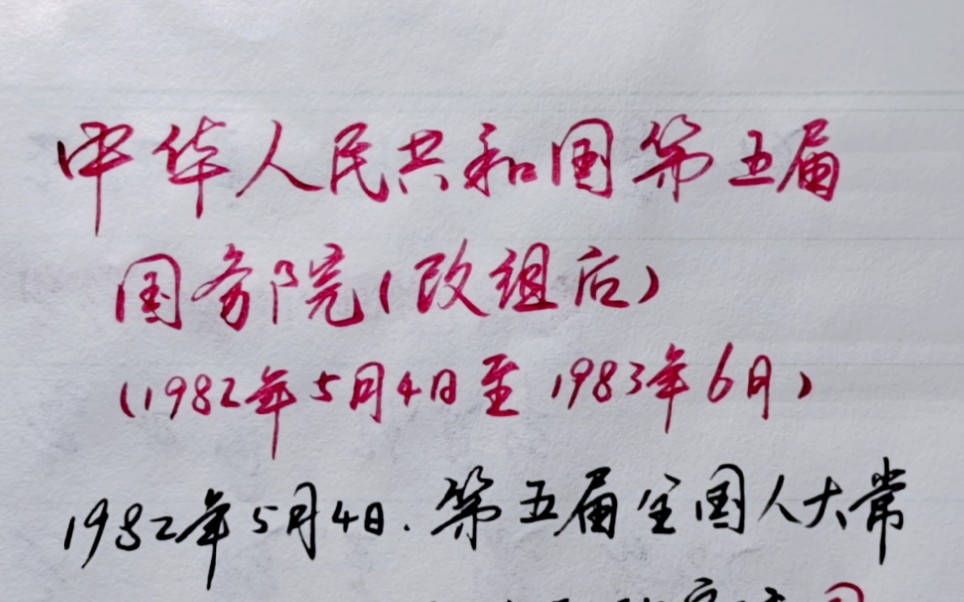 中华人民共和国第五届
国务院(改组后)
(1982年5月4日至1983年6月)
1982年5月4日.第五届全国人大常